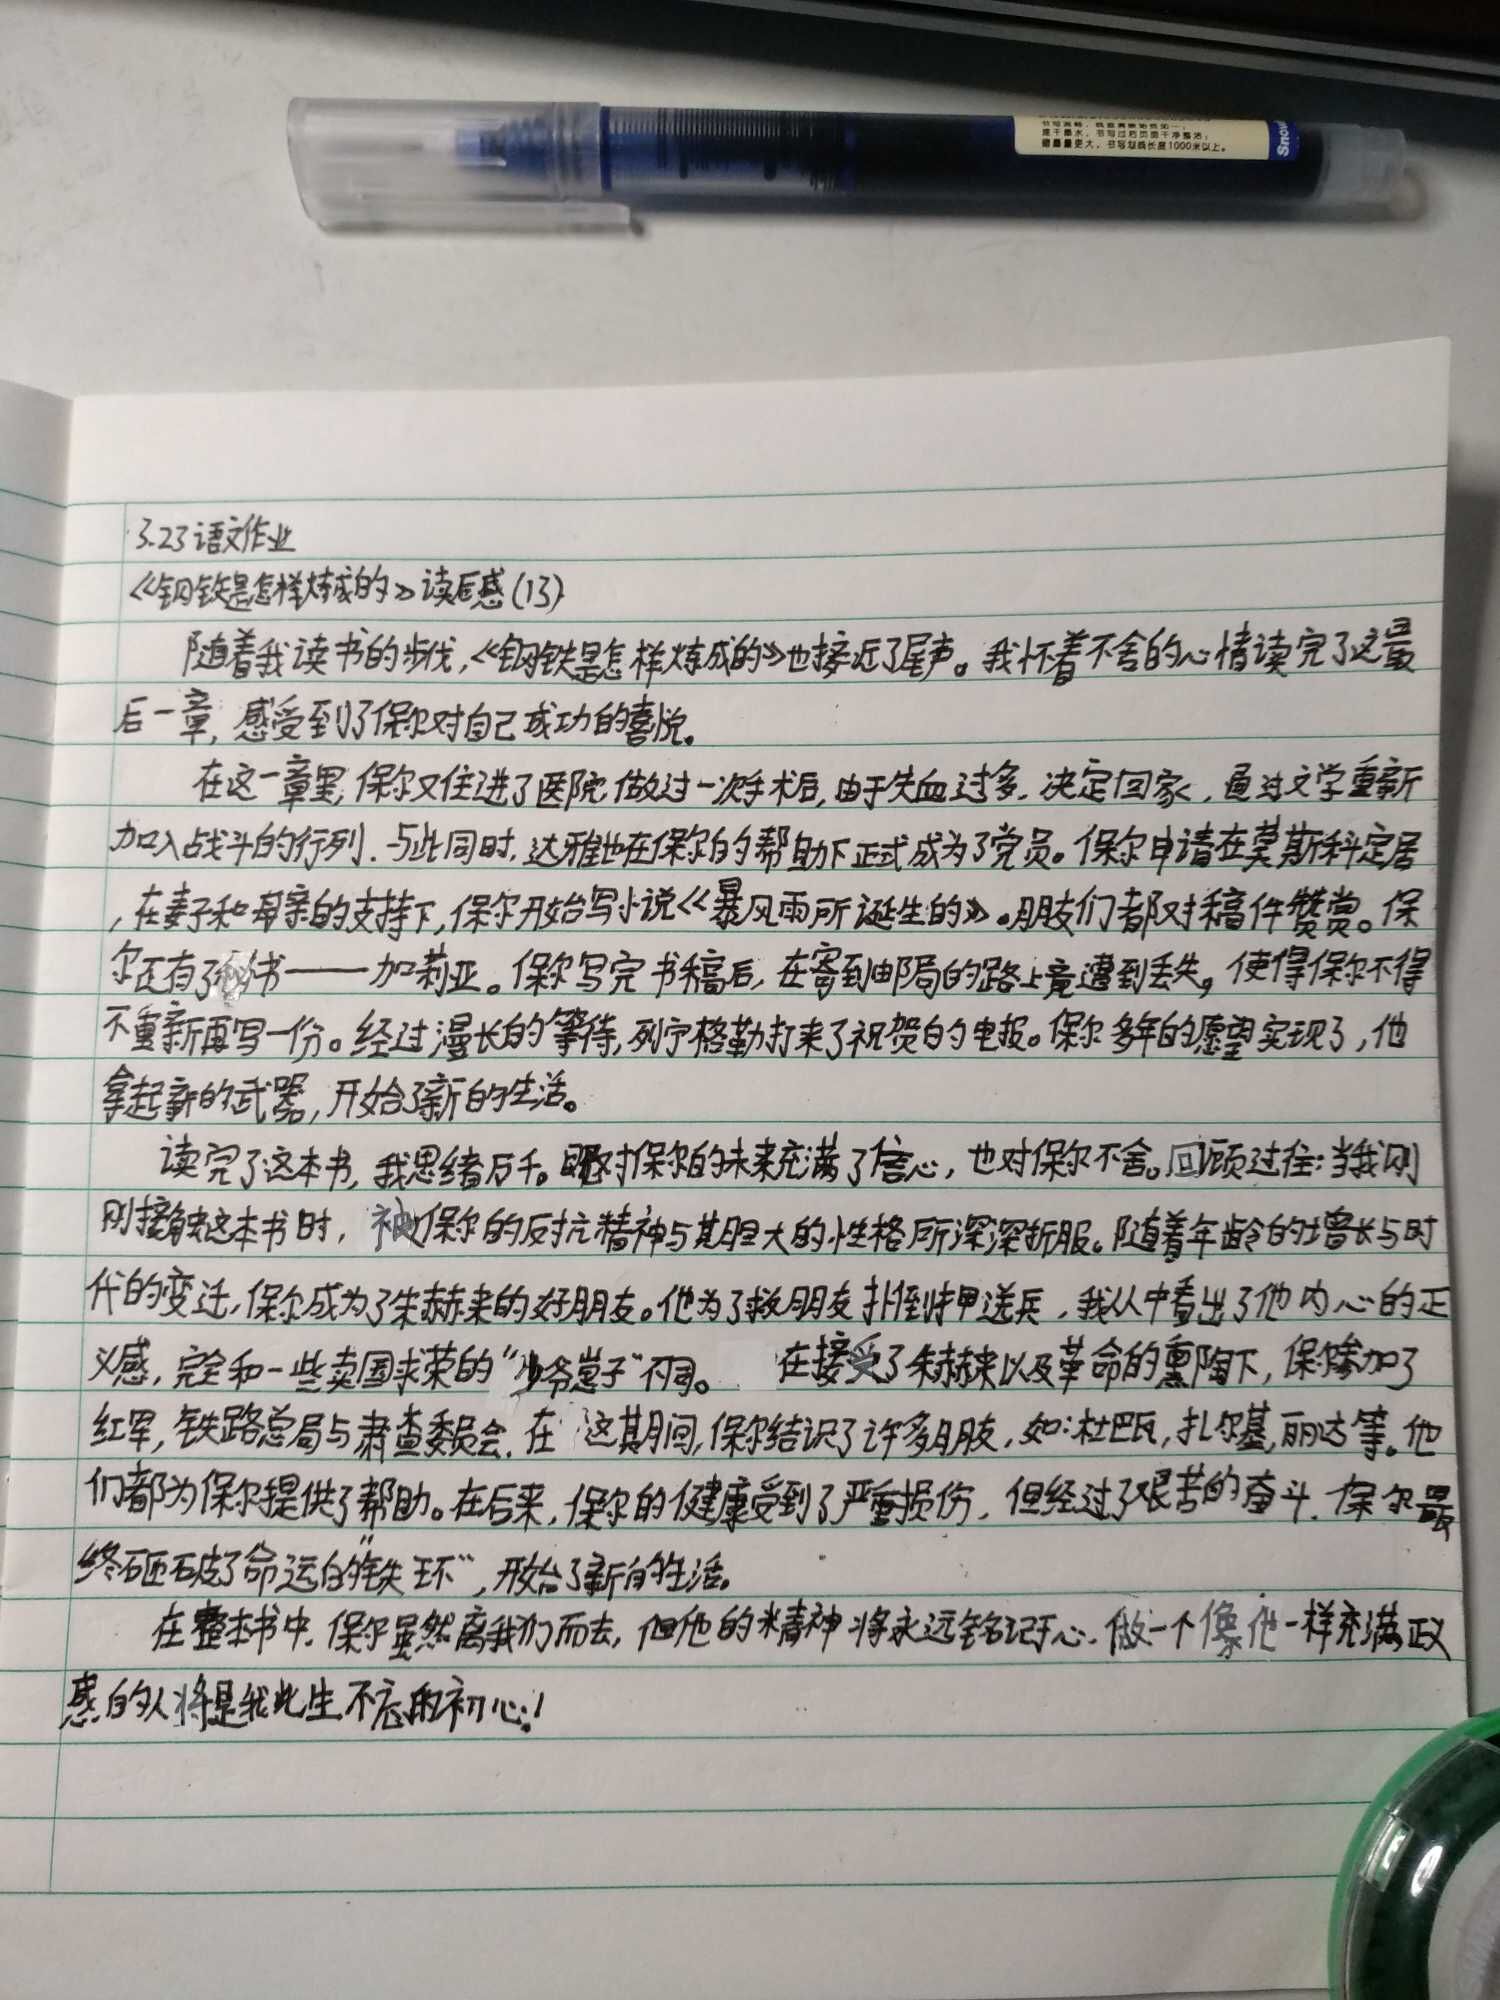 速干墨水，书写过后页面干净整洁；
储墨量更大，书写划线长度1000米以上。
Snow
3.23语文作业
《钢铁是怎样炼成的》读后感(13)
随着我读书的步伐，《钢铁是怎样炼成的》也接近了尾声。我怀着不舍的心情读完了这最
后一章，感受到了保尔对自己成功的喜悦。
在这一章里，保尔又住进了医院，做过一次手术后，由于失血过多，决定回家，通过文学重新
加入战斗的行列，与此同时，达雅也在保尔的帮助下正式成为了党员。保尔申请在莫斯科定居
，在妻子和母亲的支持下，保尔开始写小说《暴风雨所诞生的》。朋友们都对稿件赞赏。保
尔还有了秘书——加莉亚。保尔写完书稿后，在寄到邮局的路上竟遭到丢失，使得保尔不得
不重新再写一份。经过漫长的等待，列宁格勒打来了祝贺的电报。保尔多年的愿望实现了，他
拿起新的武器，开始了新的生活。
读完了这本书，我思绪万千。既对保尔的未来充满了信心，也对保尔不舍。回顾过往：当我刚
刚接触这本书时，被保尔的反抗精神与其胆大的性格所深深折服。随着年龄的增长与时
代的变迁，保尔成为了朱赫来的好朋友。他为了救朋友扑倒押送兵，我从中看出了他内心的正
义感，完全和一些卖国求荣的“少爷崽子”不同。在接受了朱赫来以及革命的熏陶下，保尔参加了
红军，铁路总局与肃查委员会，在这期间，保尔结识了许多朋友，如：杜巴瓦，扎尔基，丽达等。他
们都为保尔提供了帮助。在后来，保尔的健康受到了严重损伤，但经过了艰苦的奋斗，保尔最
终砸破了命运的“铁环”，开始了新的生活。
在整本书中，保尔虽然离我们而去，但他的精神将永远铭记于心，做一个像他一样充满正义
感的人将是我此生不忘的初心！